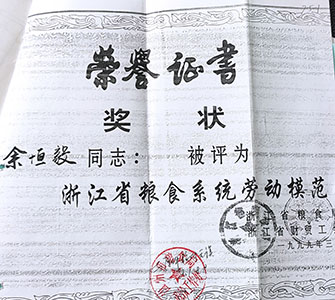 荣誉证书
奖状
余恒毅同志： 被评为
浙江省粮食系统劳动模范
浙江省粮食
浙江省财贸工
一九九九年三